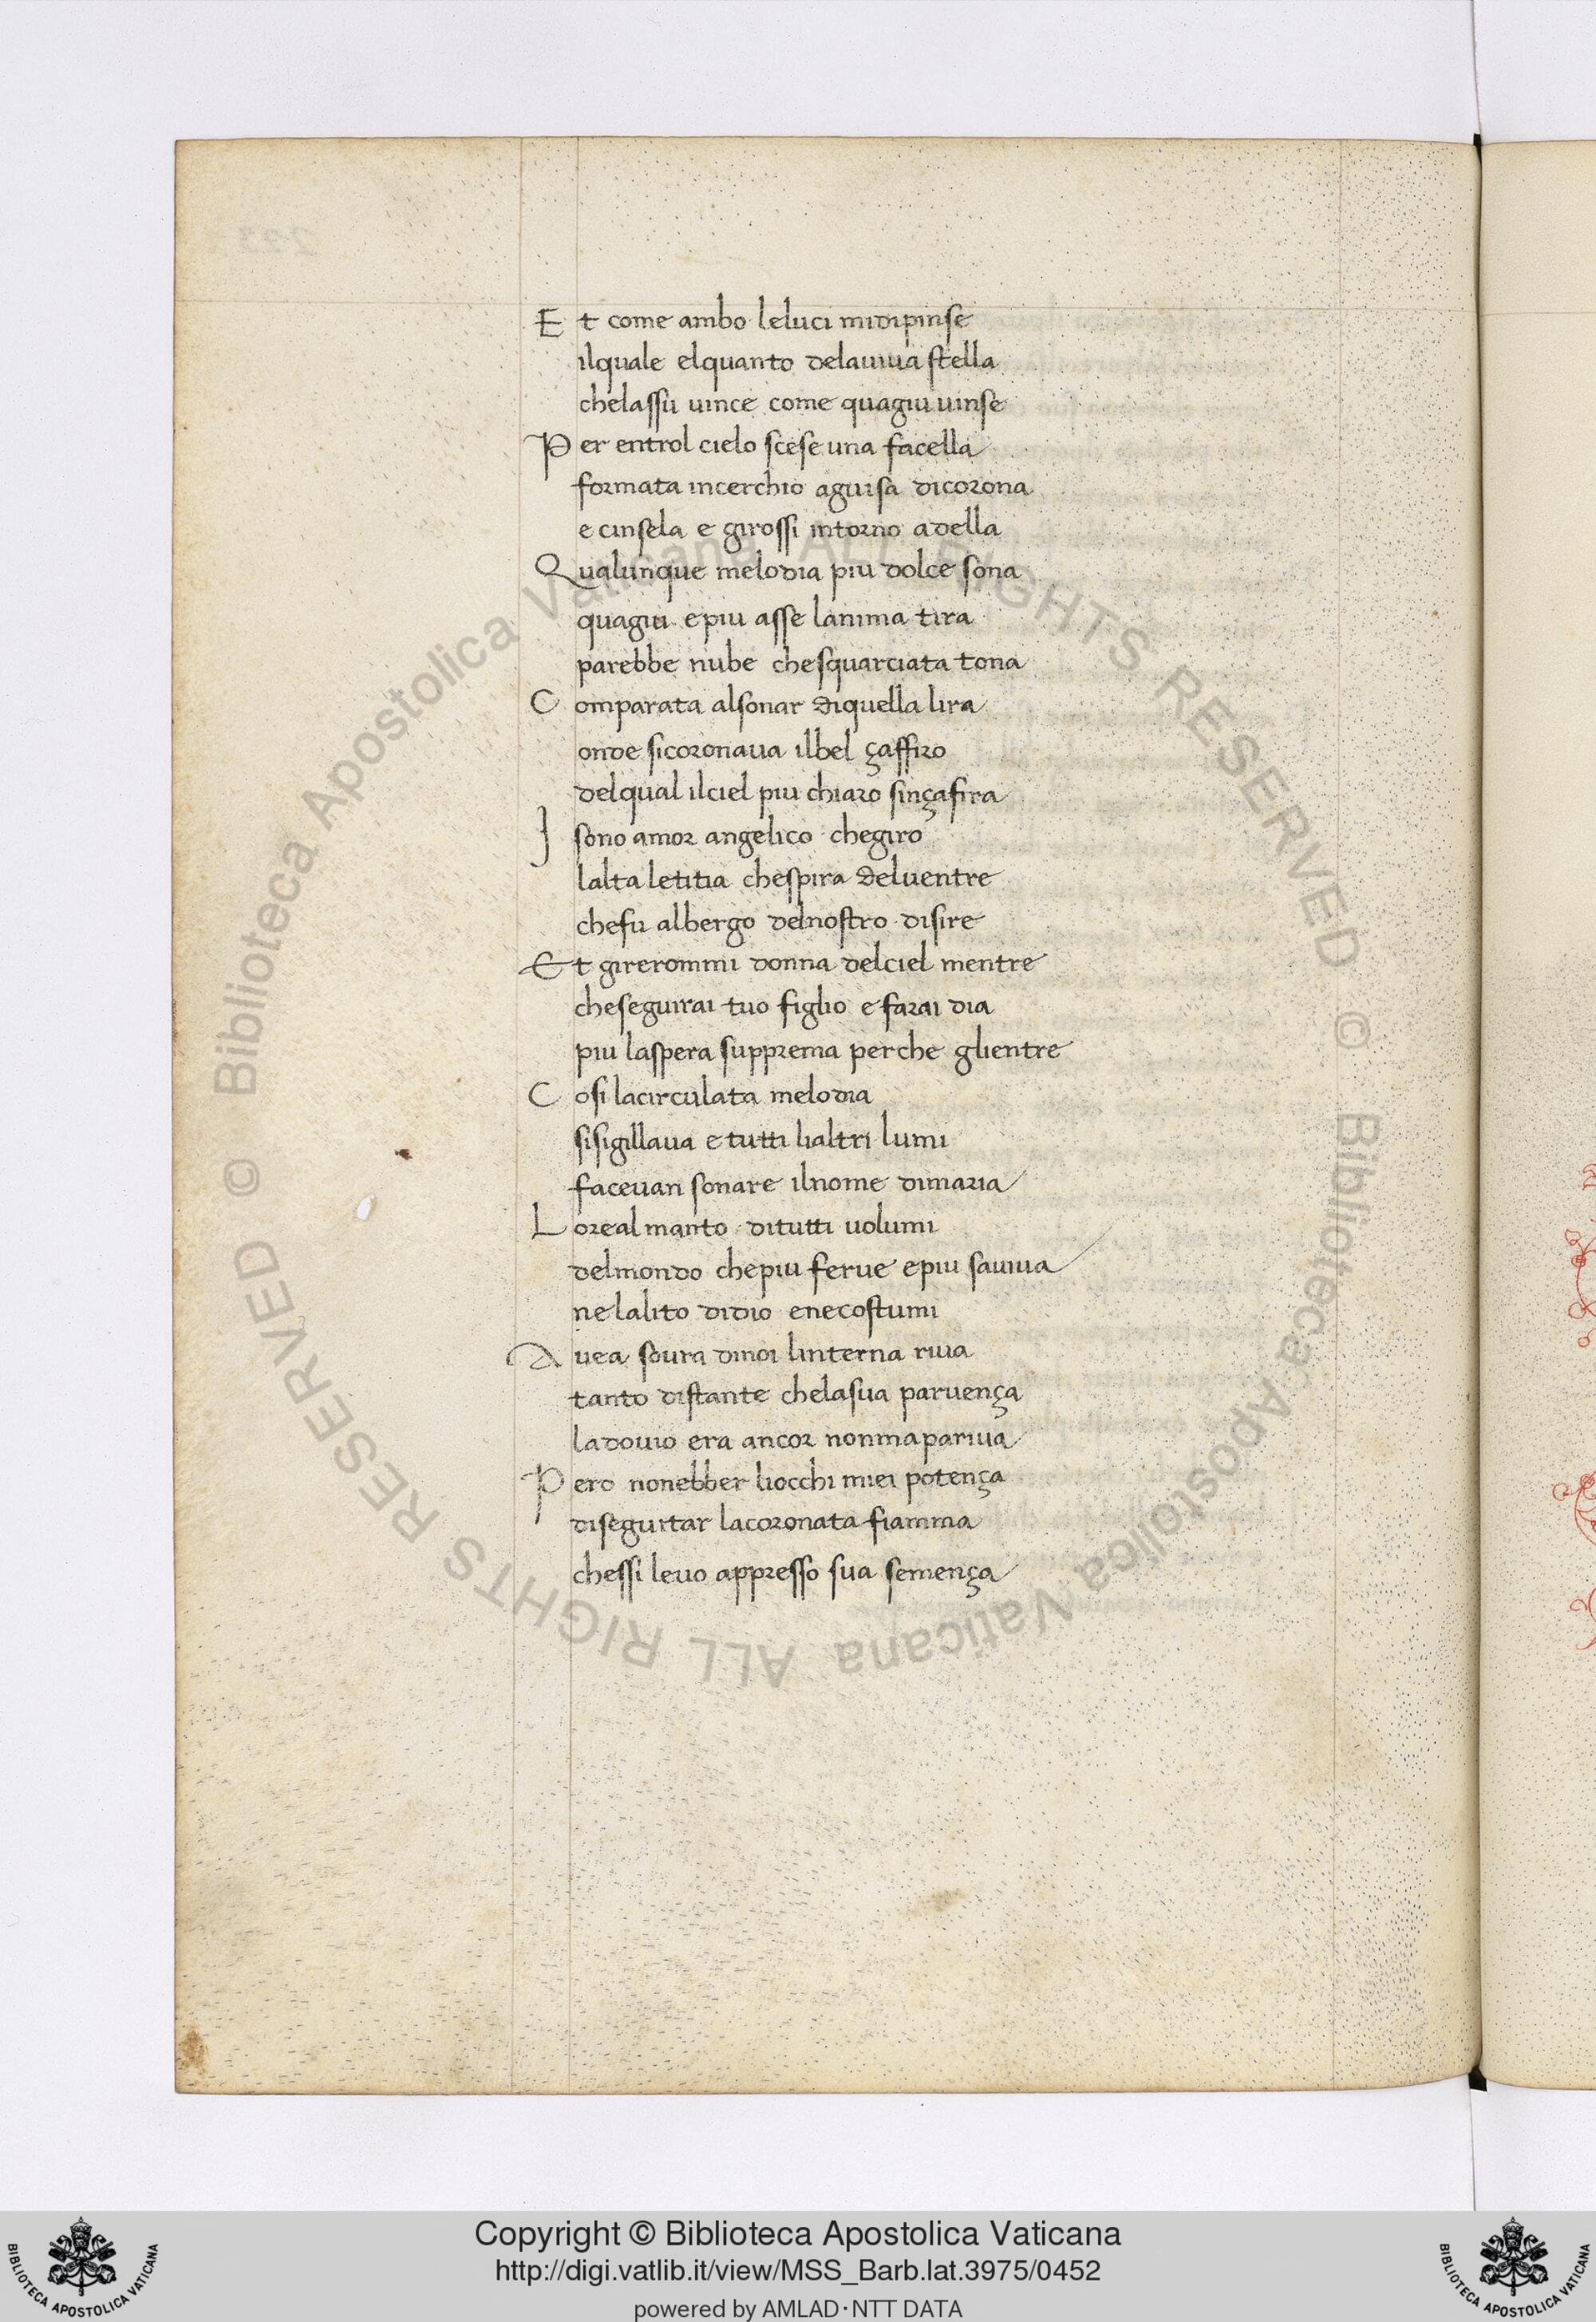 Et come ambo leluci midipinse
ilquale elquanto delauiua stella
chelassu uince come quagiu uinse
Per entrol cielo scese una facella
formata incerchio aguisa dicorona
e cinsela e girossi intorno adella
Qualunque melodia piu dolce sona
quagiu epiu asse lanima tira
parebbe nube chesquarciata tona
Comparata alsonar diquella lira
onde sicoronaua ilbel çaffiro
delqual ilciel piu chiaro sinçafira
J sono amor angelico chegiro
lalta letitia chespira deluentre
chefu albergo delnostro disire
Et girerommi donna delciel mentre
cheseguirai tuo figlio e farai dia
piu laspera supprema perche glientre
Cosi lacirculata melodia
sisigillaua e tutti lialtri lumi
faceuan sonare ilnome dimaria
Loreal manto ditutti uolumi
delmondo chepiu ferue epiu sauiua
ne lalito didio enecostumi
Auea soura dinoi linterna riua
tanto distante chelasua paruença
ladouio era ancor nonmapariua
Pero nonebber liocchi miei potença
diseguitar lacoronata fiamma
chessi leuo appresso sua semença
Copyright © Biblioteca Apostolica Vaticana
http://digi.vatlib.it/view/MSS_Barb.lat.3975/0452
powered by AMLAD·NTT DATA
BIBLIOTECA APOSTOLICA VATICANA
BIBLIOTECA APOSTOLICA VATICANA
© Biblioteca Apostolica Vaticana ALL RIGHTS RESERVED
© Biblioteca Apostolica Vaticana ALL RIGHTS RESERVED